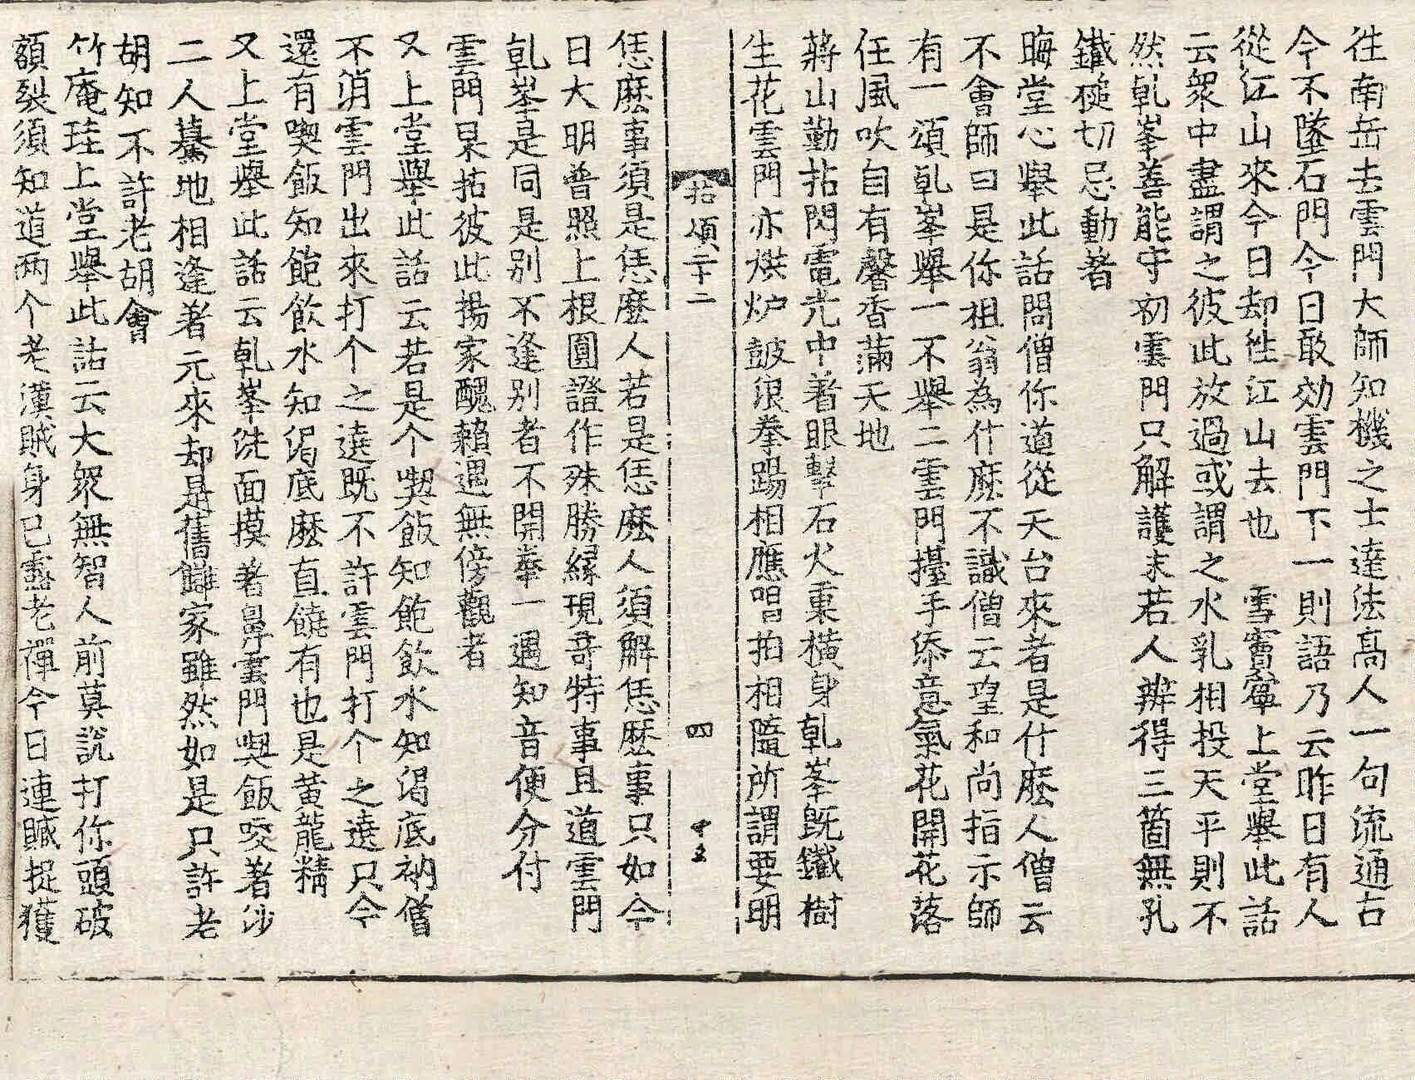 往南岳去雲門大師知機之士達法高人一句流通古
今不墜石門今日敢効雲門下一則語乃云昨日有人
從江山來今日却徃江山去也　雪竇寧上堂擧此話
云衆中盡謂之彼此放過或謂之水乳相投天平則不
然乹峯善能守初雲門只解護末若人辨得三箇無孔
鐵槌切忌動著
晦堂心擧此話問僧你道從天台來者是什麽人僧云
不會師曰是你祖翁為什麽不識僧云望和尚指示師
有一頌乹峯擧一不擧二雲門擡手添意氣花開花落
任風吹自有馨香滿天地
蔣山勤拈閃電光中着眼擊石火裏橫身乹峯旣鐵樹
生花雲門亦烘炉皷浪拳踢相應唱拍相隨所謂要明
拈頌二十二　四　中玄
恁麽事須是恁麽人若是恁麽人須解恁麽事只如今
日大明普照上根圓證作殊勝縁現竒特事且道雲門
乹峯是同是别不逢别者不開拳一遇知音便分付
雲門杲拈彼此揚家醜賴遇無傍觀者
又上堂擧此話云若是个喫飯知飽飮水知渴底衲僧
不消雲門出來打个之遶旣不許雲門打个之遶只今
還有喫飯知飽飮水知渴底麽直饒有也是黄龍精
又上堂擧此話云乹峯洗面摸著鼻雲門喫飯咬著沙
二人驀地相逢著元來却是舊讎家雖然如是只許老
胡知不許老胡會
竹庵珪上堂擧此話云大衆無智人前莫說打你頭破
額裂須知道两个老漢賊身已露老禪今日連贓捉獲